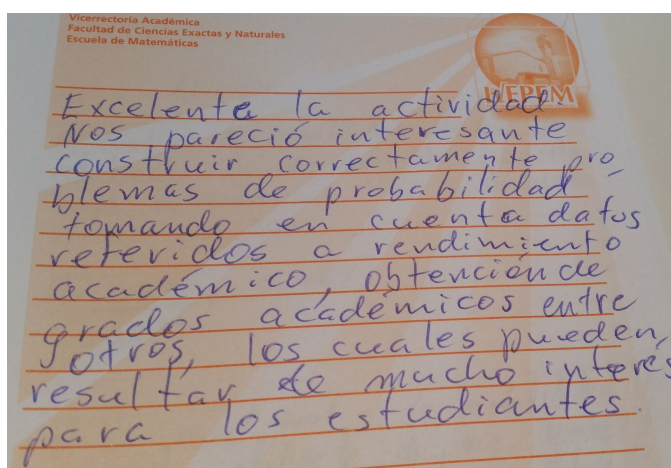 Vicerrectoría Académica
Facultad de Ciencias Exactas y Naturales
Escuela de Matemáticas
Excelente la actividad.
Nos pareció interesante
construir correctamente pro
blemas de probabilidad
tomando en cuenta datos
referidos a rendimiento
académico, obtención de
grados académicos entre
otros, los cuales pueden,
resultar de mucho interés
para los estudiantes.